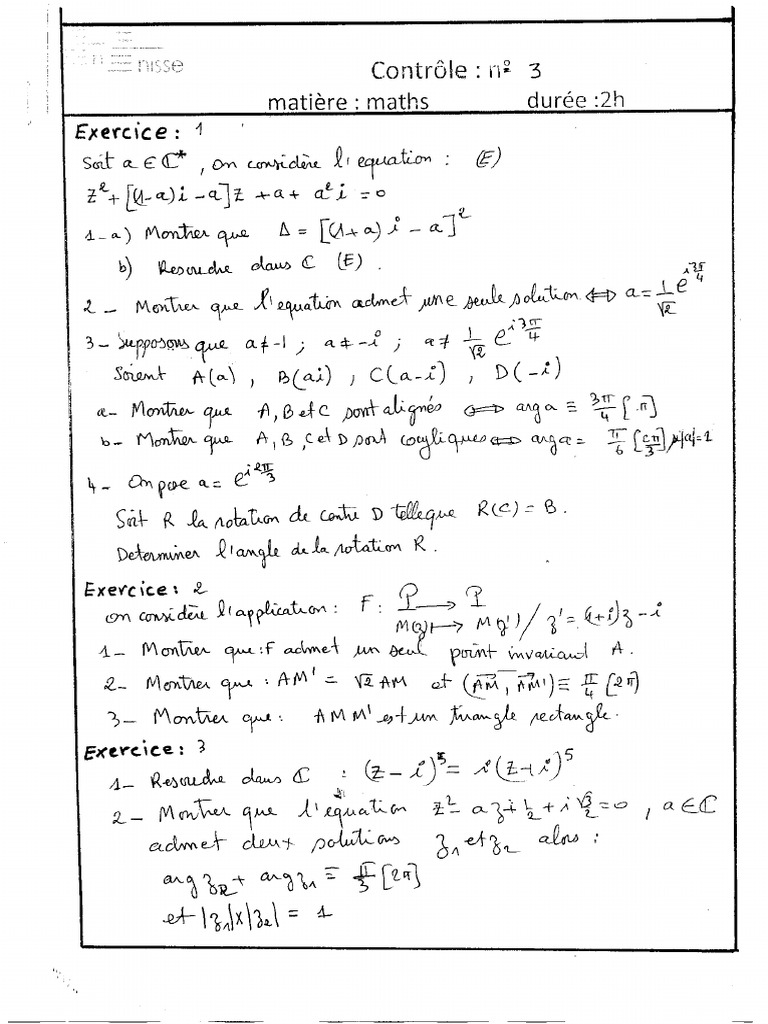 nisse
Contrôle : n° 3
matière : maths durée :2h
Exercice : 1
Soit a ∈ ℂ* , on considère l'equation : (E)
z² + [(1-a)i - a]z + a + a²i = 0
1-a) Montrer que Δ = [(1+a)i - a]²
b) Resoudre dans ℂ (E).
2 - Montrer que l'equation admet une seule solution ⟺ a = 1/√2 e^{i3π/4}
3 - Supposons que a ≠ -1 ; a ≠ -i ; a ≠ 1/√2 e^{i3π/4}
Soient A(a) , B(ai) , C(a-i) , D(-i)
a- Montrer que A, B et C sont alignés ⟺ arg a ≡ 3π/4 [π]
b- Montrer que A, B, C et D sont cocyliques ⟺ arg a = π/6 [2π/3] |a|=1
4 - On pose a = e^{i2π/3}
Soit R la rotation de centre D telle que R(C) = B.
Determiner l'angle de la rotation R.
Exercice : 2
On considère l'application : F : P ⟶ P
M(z) ⟼ M'(z') / z' = (1+i)z - i
1- Montrer que : F admet un seul point invariant A.
2- Montrer que : AM' = √2 AM et (AM⃗, AM'⃗) ≡ π/4 [2π]
3- Montrer que : AMM' est un triangle rectangle.
Exercice : 3
1- Resoudre dans ℂ : (z-i)⁵ = i(z+i)⁵
2- Montrer que l'équation z² - az + 1/2 + i √3/2 = 0 , a ∈ ℂ
admet deux solutions z₁ et z₂ alors :
arg z₂ + arg z₁ ≡ π/3 [2π]
et |z₁|x|z₂| = 1